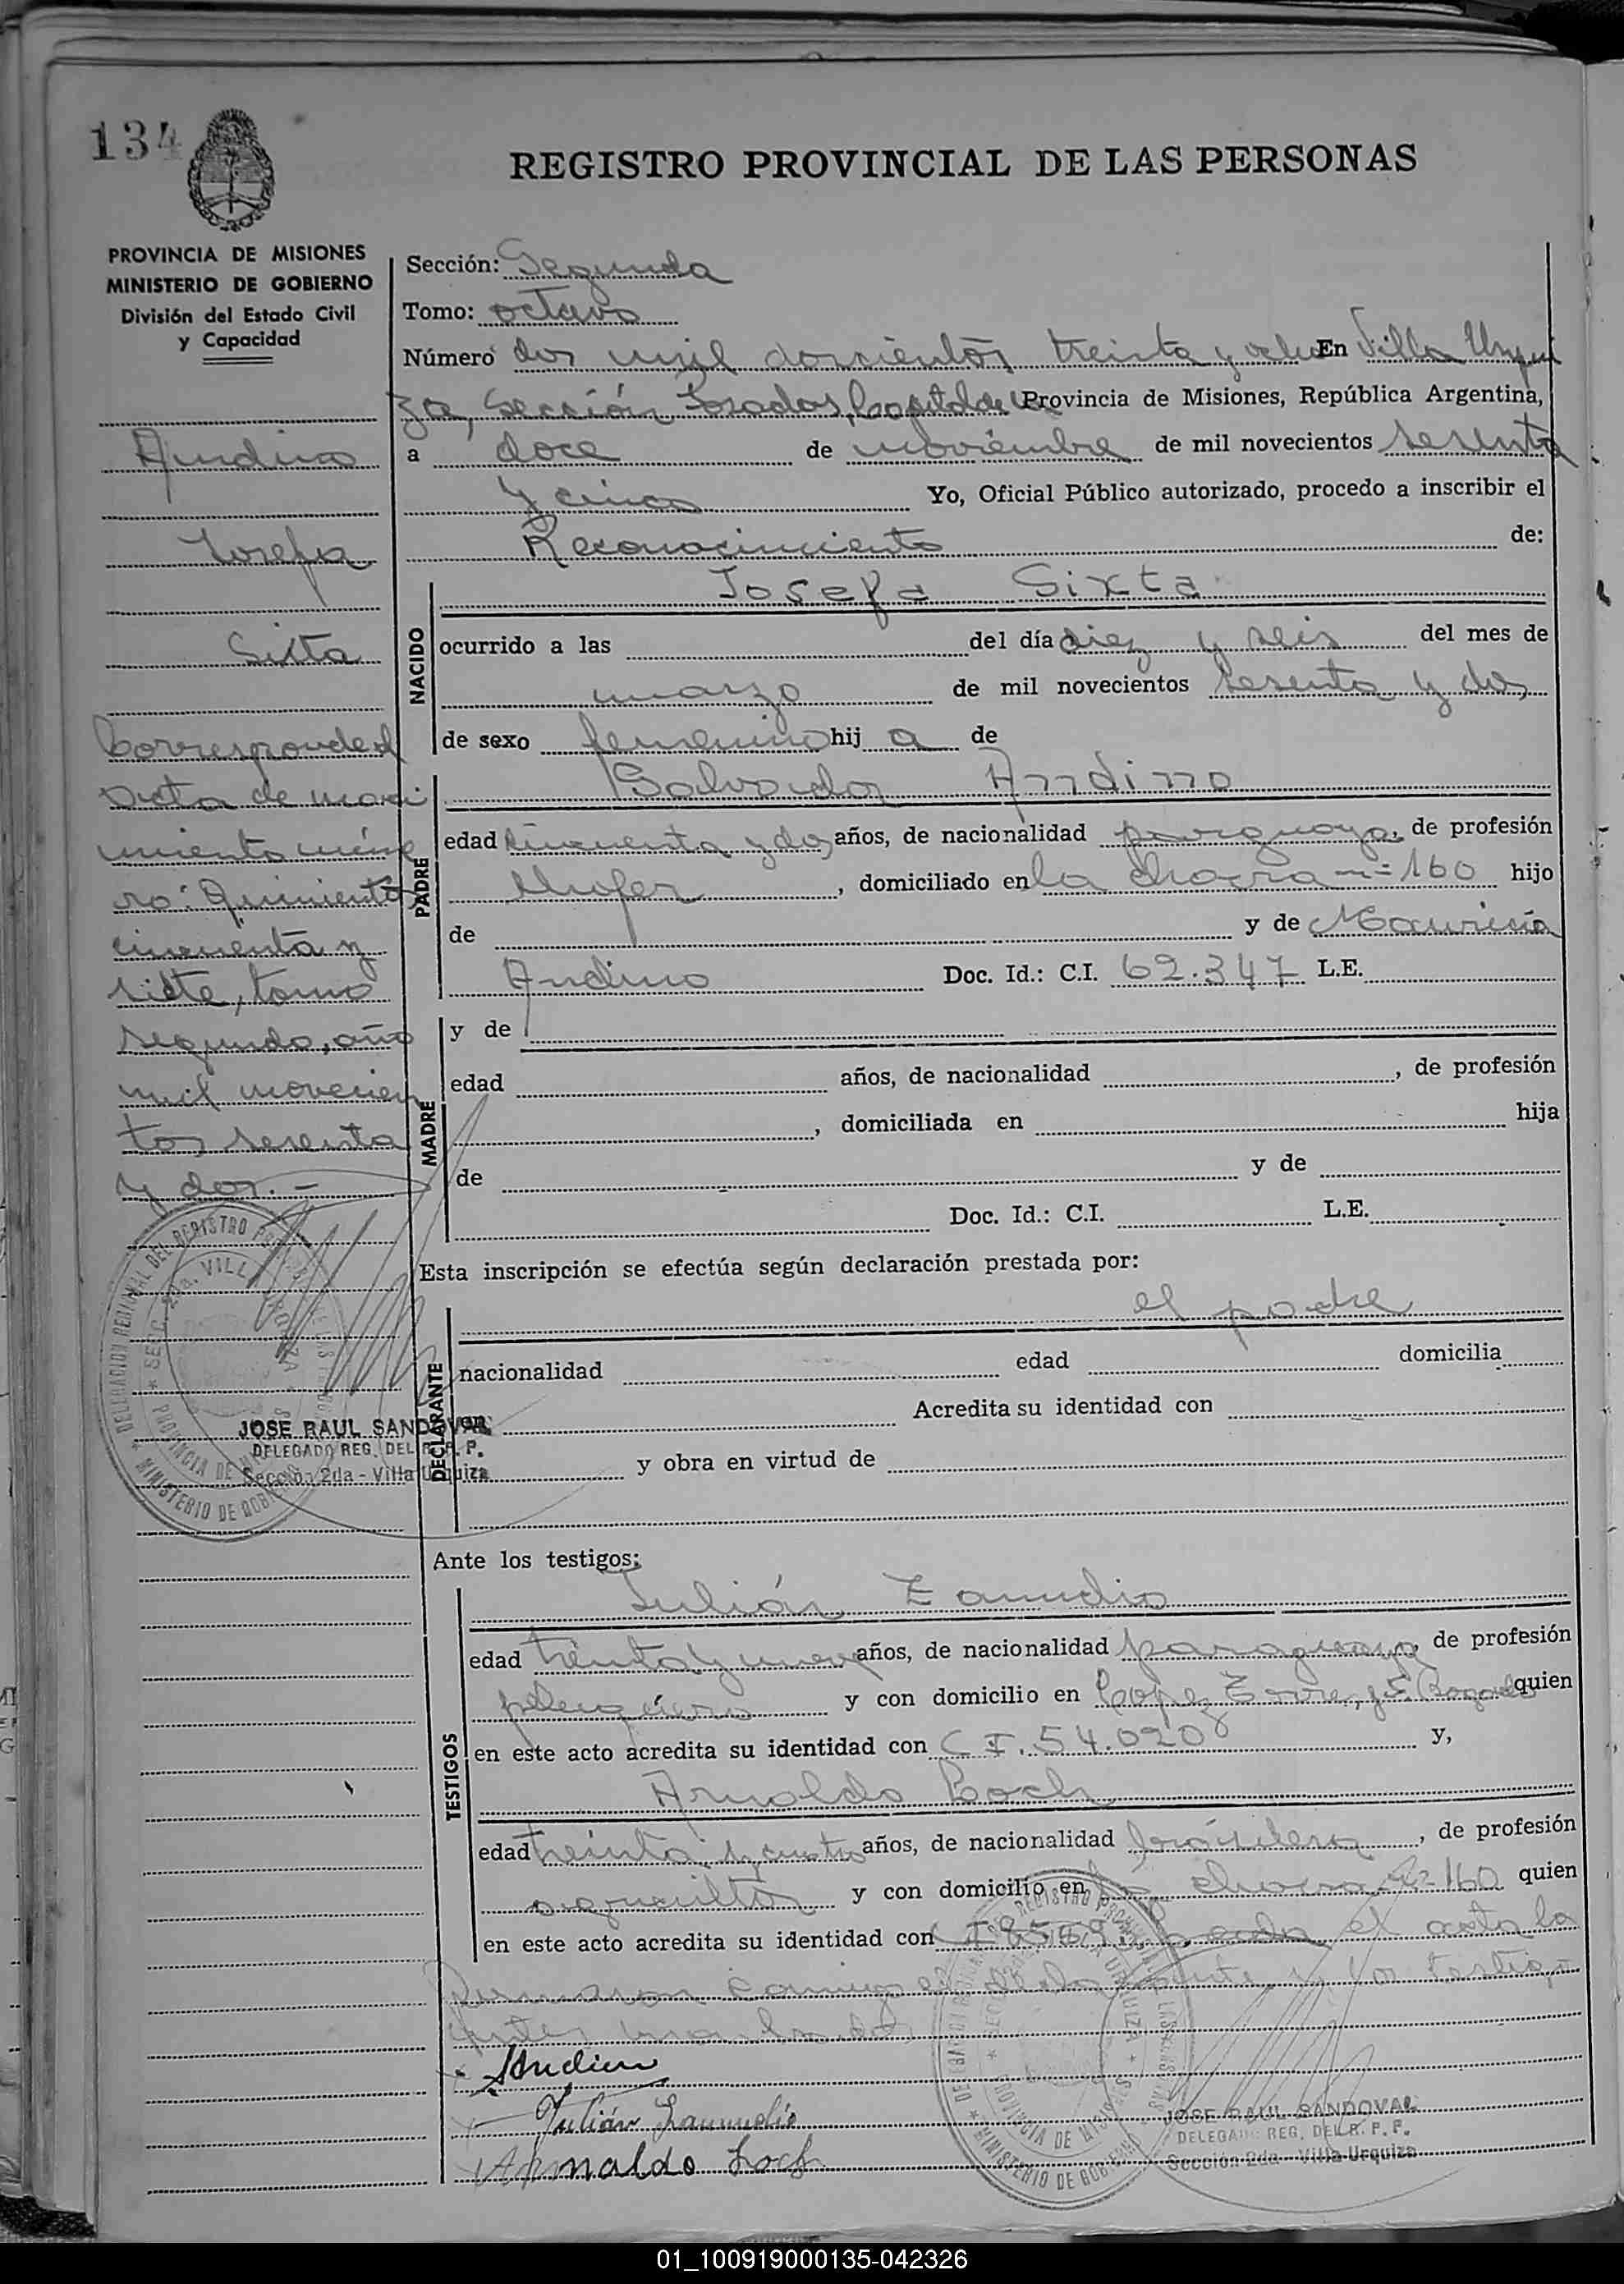 134
REGISTRO PROVINCIAL DE LAS PERSONAS
PROVINCIA DE MISIONES
MINISTERIO DE GOBIERNO
División del Estado Civil
y Capacidad
Andino
Josefa
Sixta
Corresponde al
acta de naci
miento núme
ro: Quinientos
cincuenta y
siete, tomo
segundo, año
mil novecien
tos sesenta
y dos.-
Sección: Segunda
Tomo: octavo
Número dos mil doscientos treinta y ocho En Villa Urqui
za, Sección Posadas, Capital de la Provincia de Misiones, República Argentina,
a doce de noviembre de mil novecientos sesenta
y cinco Yo, Oficial Público autorizado, procedo a inscribir el
Reconocimiento de:
NACIDO
Josefa Sixta
ocurrido a las del día diez y seis del mes de
marzo de mil novecientos sesenta y dos
de sexo femenino hij a de
PADRE
Salvador Andino
edad cincuenta y dos años, de nacionalidad paraguaya, de profesión
, domiciliado en la chacra n=160 hijo
de y de Mauricia
Andino Doc. Id.: C.I. 62.347 L.E.
MADRE
y de
edad años, de nacionalidad , de profesión
, domiciliada en hija
de y de
Doc. Id.: C.I. L.E.
Esta inscripción se efectúa según declaración prestada por:
DECLARANTE
el padre
nacionalidad edad domicilia
en Acredita su identidad con
y obra en virtud de
DELEGACION REGIONAL DEL REGISTRO PROVINCIAL DE LAS PERSONAS
SECC. 2da. VILLA URQUIZA
PROVINCIA DE MISIONES
MINISTERIO DE GOBIERNO
JOSE RAUL SANDOVAL
DELEGADO REG. DEL R. P. P.
Sección 2da - Villa Urquiza
Ante los testigos:
TESTIGOS
Julián Zamudio
edad treinta y nueve años, de nacionalidad paraguaya, de profesión
peluquero y con domicilio en López Torres y E. quien
en este acto acredita su identidad con C I. 54.020 y,
Arnaldo Loch
edad treinta y cuatro años, de nacionalidad brasilera, de profesión
agricultor y con domicilio en la chacra n=160 quien
en este acto acredita su identidad con el acta la
firmaron conmigo el y los testigos
antes
Andino
Julián Zamudio
Arnaldo Loch
DELEGACION REGIONAL DEL REGISTRO PROVINCIAL DE LAS PERSONAS
PROVINCIA DE MISIONES
MINISTERIO DE GOBIERNO
JOSE RAUL SANDOVAL
DELEGADO REG. DEL R. P. P.
Sección 2da - Villa Urquiza
01_100919000135-042326